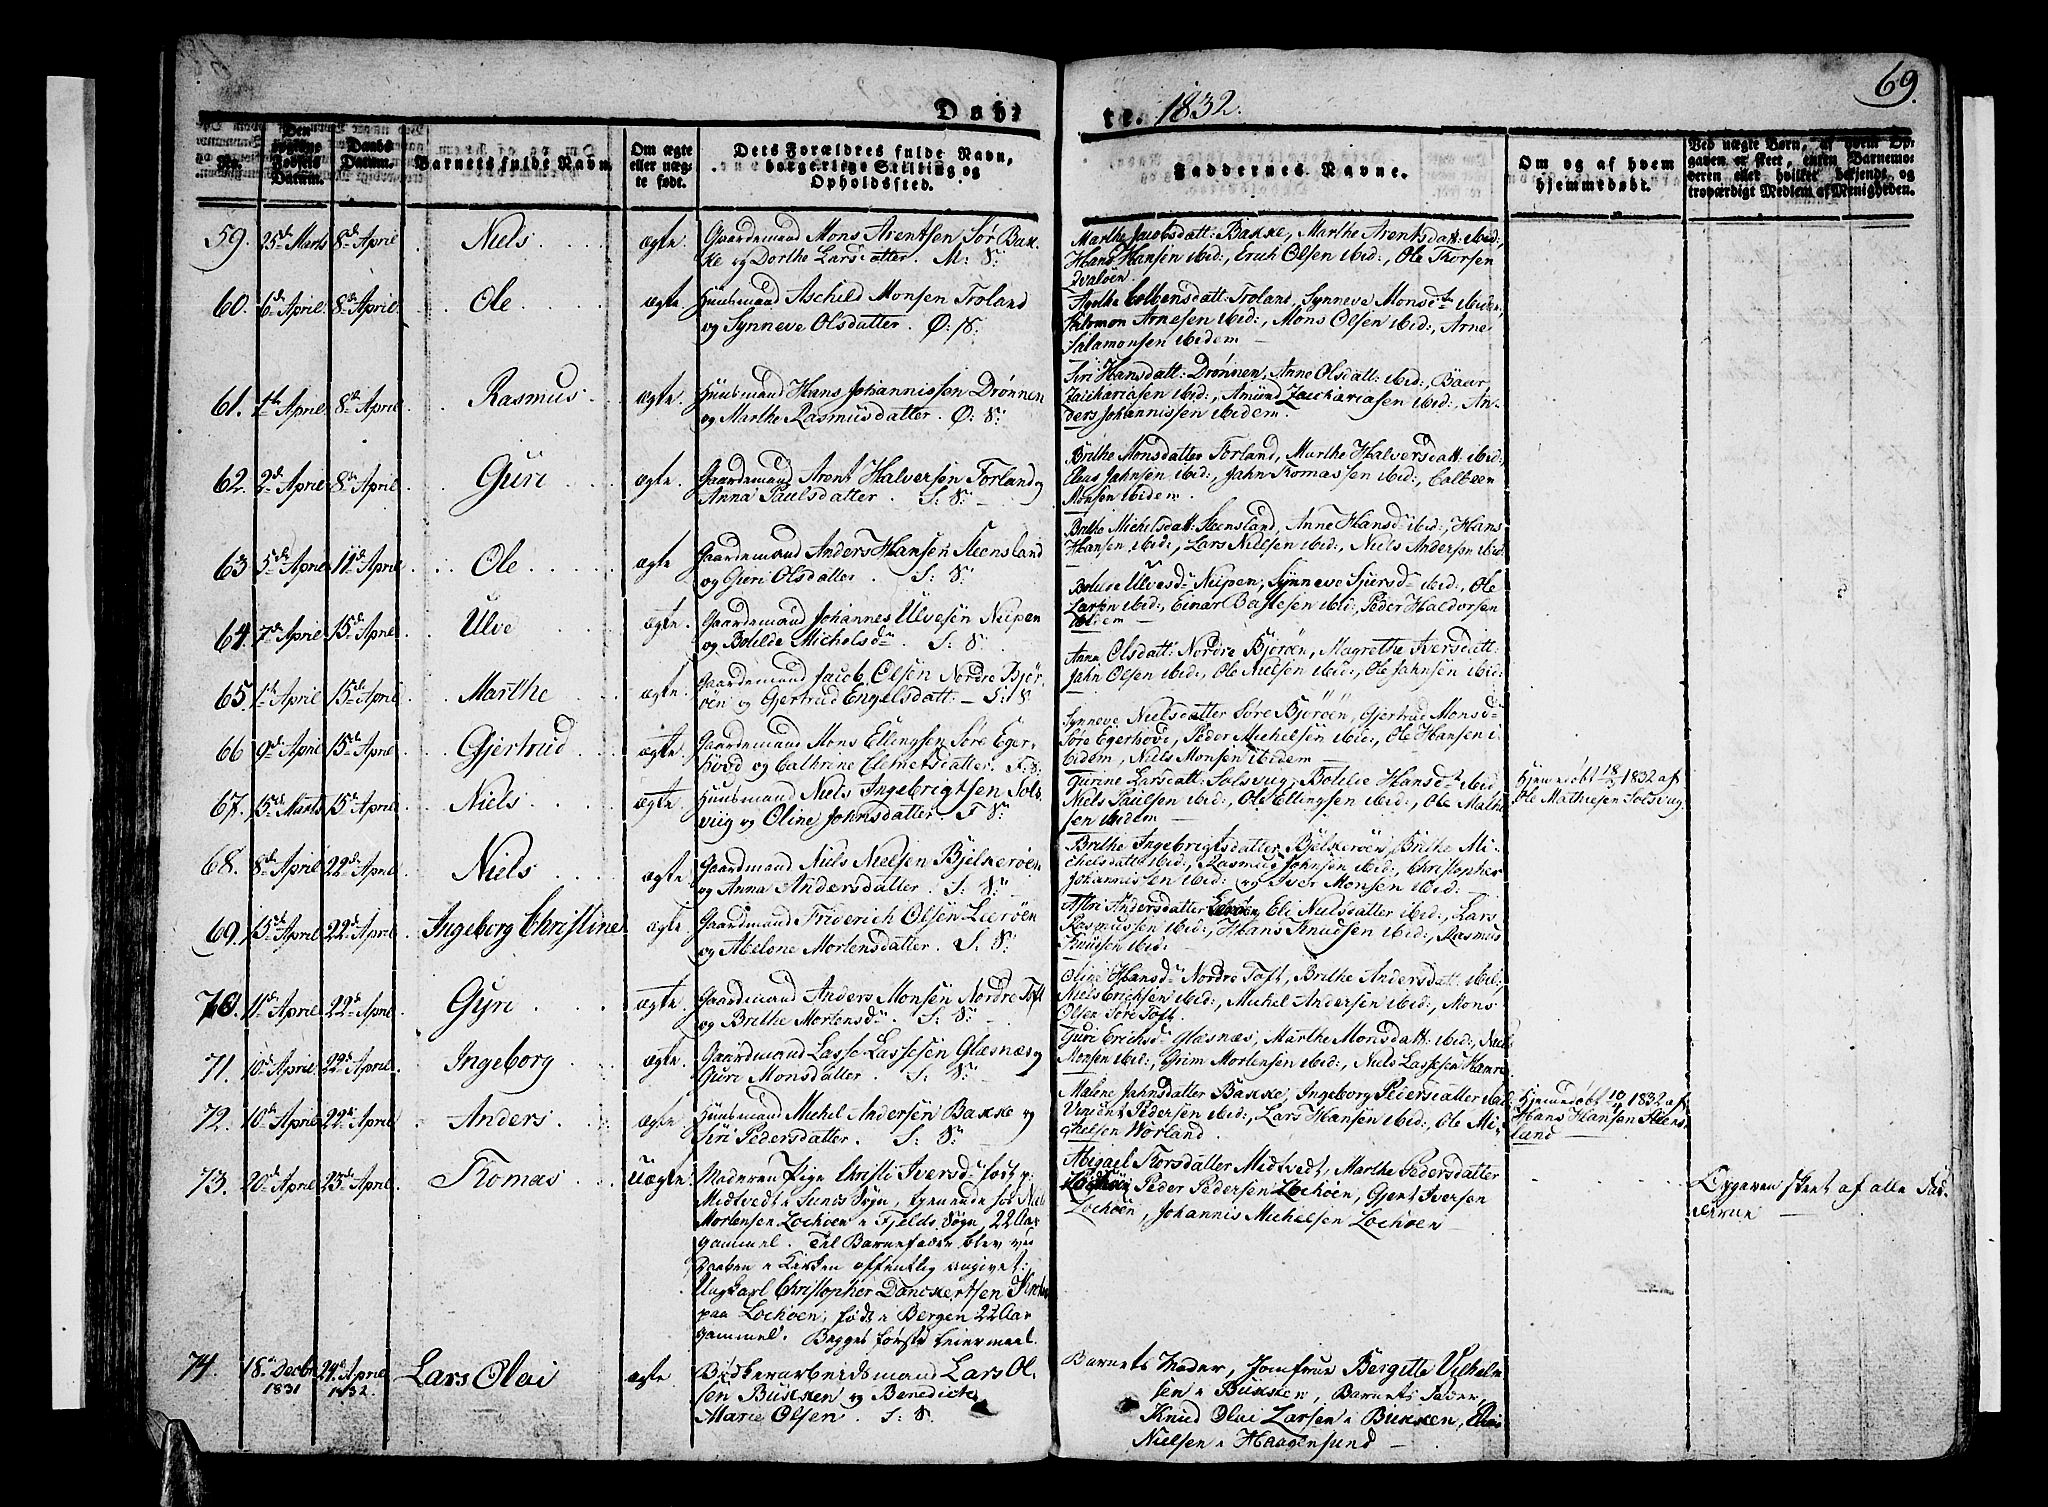 69.
Døbte. 1832.
No.
Den
Fødsels
Datum.
Daabs
Datum.
Barnets fulde Navn
Om ægte
eller uæg-
te født.
Dets Forældres fulde Navn,
borgerlige Stilling og
Opholdssted.
Faddernes Navne.
Om og af hvem
hjemmedøbt.
Ved uægte Børn, af hvem Op-
gaven er skeet, enten Barnemo-
deren eller hvilket bekjendt og
troværdigt Medlem af Menigheden.
59. 25de Marts 8de April Niels ægte.
Gaardemand Mons Arentsen Sör Bak-
ke og Dorthe Larsdatter. M: S:
Marthe Jacobsdatt: Bakke, Marthe Arentsdatt: ibid:,
Hans Hansen ibid:, Erich Olsen ibid:, Ole Thorsen
60. 6te April 8de April. Ole ægte
Huusmand Aschild Monsen Troland
og Synneve Olsdatter. Ø: S:
Agathe Colbensdatt: Troland, Synneve Monsdr ibidem,
Salomon Arnesen ibid:, Mons Olsen ibid:, Arne
Salamonsen ibidem
61. 1te April 8de April Rasmus ægte.
Huusmand Hans Johannissen Drönnen
og Marthe Rasmusdatter. Ø: S:
Siri Hansdatt: Drönnen, Anne Olsdatt: ibid:, Baar
Zachariasen ibid:, Amund Zachariasen ibid:, An-
ders Johannissen ibidem.
62. 2de April 8de April Guri ægte.
Gaardemand Arent Halversen Forland og
Anna Paulsdatter. S: S:
Brithe Monsdatter Forland, Marthe Halversdatt: ibid:,
Claus Jahnsen ibid:, Jahn Tomassen ibid:, Colbeen
Monsen ibidem.
63. 5te April 11te April Ole ægte
Gaardemand Anders Hansen Steensland
og Guri Olsdatter. S: S:
Brithe Michelsdatt: Steensland, Anne Hansdr ibid:, Hans
Hansen ibid:, Lars Nielsen ibid:, Niels Andersen ibid:
64. 7de April 15de April Ulve ægte.
Gaardemand Johannes Ulvesen Neipen
og Botilde Michelsdr. S: S:
Ulvesdr Neipen, Synneve Sjursdr ibid:, Ole
Larsen ibid:, Einar Bastesen ibid:, Peder Haldorsen
ibidem
65. 1te April 15de April Marthe ægte.
Gaardemand Jacob Olsen Nordre Bjor-
öen og Gjertrud Engelsdatt: S: S:
Anna Olsdatt: Nordre Bjoröen, Magrethe Iversdatt:
Jahn Olsen ibid:, Ole Nielsen ibid:, Ole Jahnsen ibid:
66 9de April 15de April Gjertrud ægte.
Gaardemand Mons Ellingsen Söre Eger-
hovd og Cathrine Clemetsdatter. F: S:
Synneve Nielsdatter Söre Bjoröen, Gjertrud Monsdr
Söre Egerhovd, Peder Michelsen ibid:, Ole Hansen i-
bidem, Niels Monsen ibidem
67. 15de Marts 15de April Niels ægte
Huusmand Niels Ingebrigtsen Sols-
viig og Oline Johnsdatter. F: S:
Gurine Larsdatt: Solsviig, Botelie Hansdr ibid:
Niels Paulsen ibid:, Ole Ellingsen ibid:, Ole Mathi-
sen ibidem
Hjemmedøbt 18/3 1832 af
Ole Mathiesen Solsviig
68. 8de April 22de April Niels ægte.
Gaardmand Niels Nielsen Bjelkeröen
og Anna Andersdatter. S: S:
Brithe Ingebrigtsdatter Bjelkeröen, Brithe Mi-
chelsdatt: ibid:, Rasmus Johnsen ibid:, Christopher
Johannissen ibid: og Iver Monsen ibid:
69. 15de April 22de April Ingeborg Christine ægte.
Gaardmand Friderich Olsen Lieröen
og Abelone Mortensdatter. S: S:
Astri Andersdatter Eli Nielsdatter ibid:, Lars
Rasmussen ibid:, Hans Knudsen ibid:, Rasmus
Knudsen ibid:
70. 11te April 22de April Gyri ægte.
Gaardmand Anders Monsen Nordre Toft
og Brithe Mortensdr. S: S:
Oline Hansdr Nordre Toft, Brithe Andersdatt: ibid:,
Niels Erichsen ibid:, Michel Andersen ibid:, Mons
Olsen Söre Toft.
71. 10de April 22de April Ingeborg ægte.
Gaardmand Lasse Lassesen Glæsnæs og
Guri Monsdatter. S: S:
Guri Erichsdr Glæsnæs, Marthe Monsdatt: ibid:, Niels
Monsen ibid:, Grim Mortensen ibid:, Niels Lassesen Hamre
72. 10de April 22de April Anders ægte
Huusmand Michel Andersen Bakke og
Siri Pedersdatter. S: S:
Malene Jahnsdatter Bakke, Ingeborg Pedersdatter ibid:
Vincent Pedersen ibid:, Lars Hansen ibid:, Ole Mi-
chelsen Worland.
Hjemmedøbt 10/4 1832 af
Hans Hansen Steens-
land
73. 20de April 23de April Tomas Uægte.
Moderen Pige Christi Iversdr født p:
Midtvedt i Sunds Sogn, tjenende for Niels
Mortensen Lochöen i Fjelds Sogn, 22 Aar
gammel. Til Barnefader blev ved
Daaben i Kirken offentlig angivet:
Ungkarl Christopher Danckertsen
paa Lochöen, født i Bergen 22 Aar
gammel. Begges første Leiermaal.
Abigael Torsdatter Midtvedt, Marthe Pedersdatter
Lochöen Peder Pedersen Lochöen, Gjert Iversen
Lochöen, Johannis Michelsen Lochöen
Opgaven skeet af alle Fad-
derne
74. 18de Decbr 1831 24de April 1832 Lars Olai ægte
Bödkerarbeidsmand Lars Ol-
sen Bukken og Benedicte
Marie Olsen. S: S:
Barnets Moder, Jomfrue Bergitte Vilhelm-
sen i Bukken, Barnets Fader,
Knud Olai Larsen i Bukken,
Nielsen i Haagensund